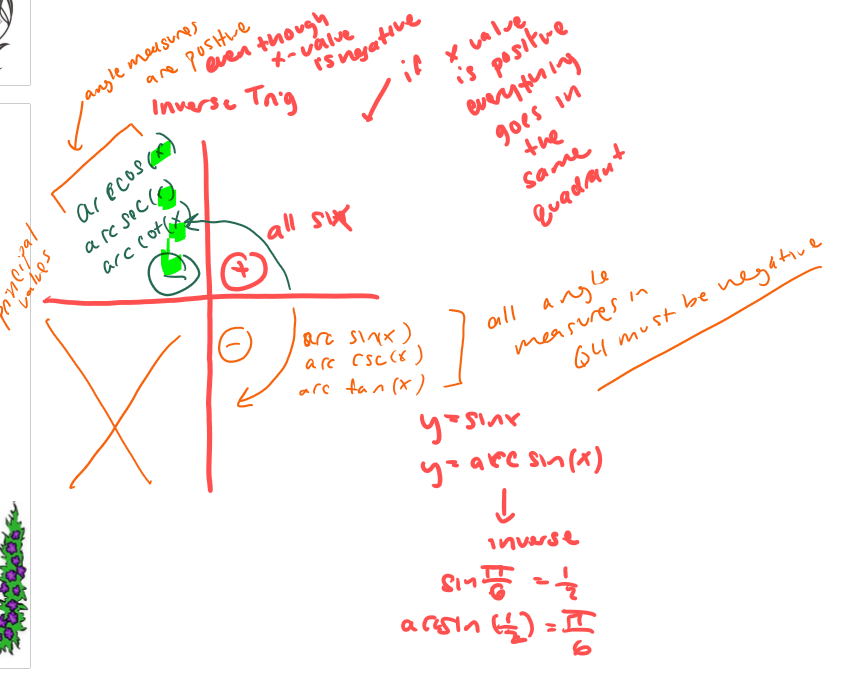 angle measures
are positive
even though
x-value
is negative
Inverse Trig
if x value
is positive
everything
goes in
the
same
quadrant
arccos(x)
arcsec(x)
arccot(x)
-
all six
+
principal
values
-
arc sin(x)
arc csc(x)
arc tan(x)
all angle
measures in
Q4 must be negative
y=sinx
y=arcsin(x)
inverse
sin π/6 = 1/2
arcsin (1/2) = π/6